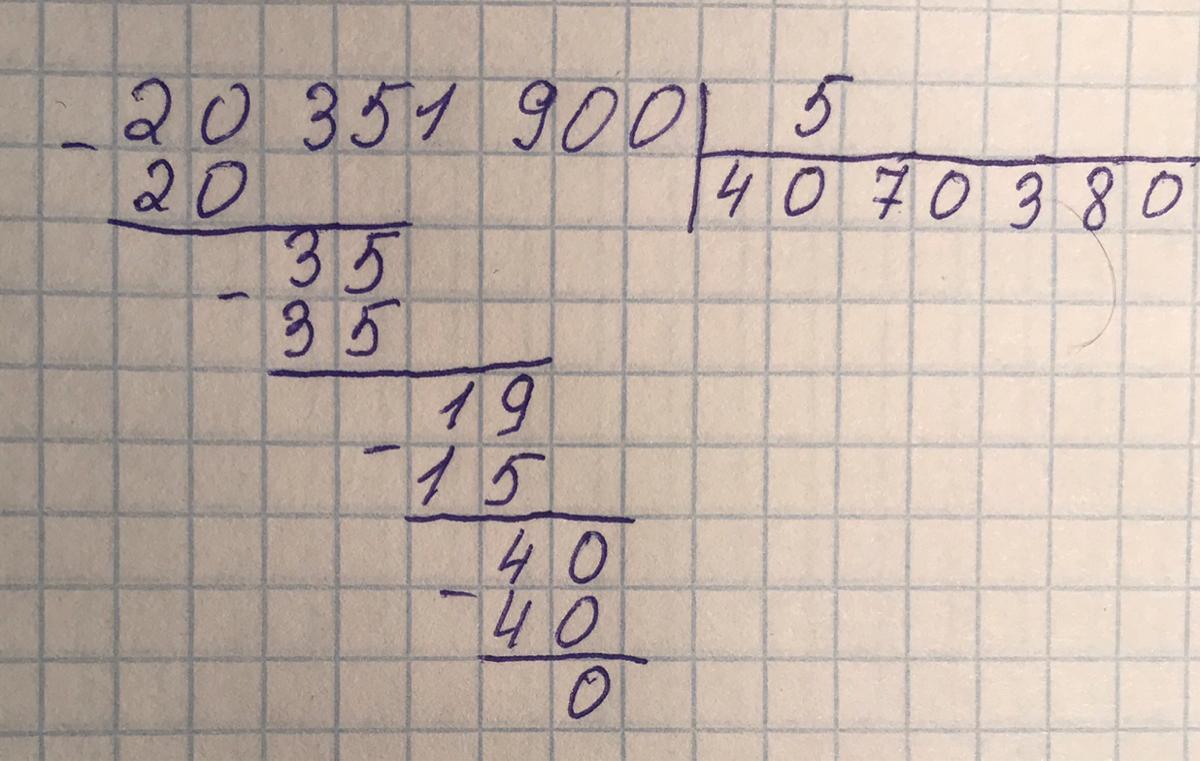 - 20 351 900 5
20 4070380
35
- 35
19
- 15
40
- 40
0